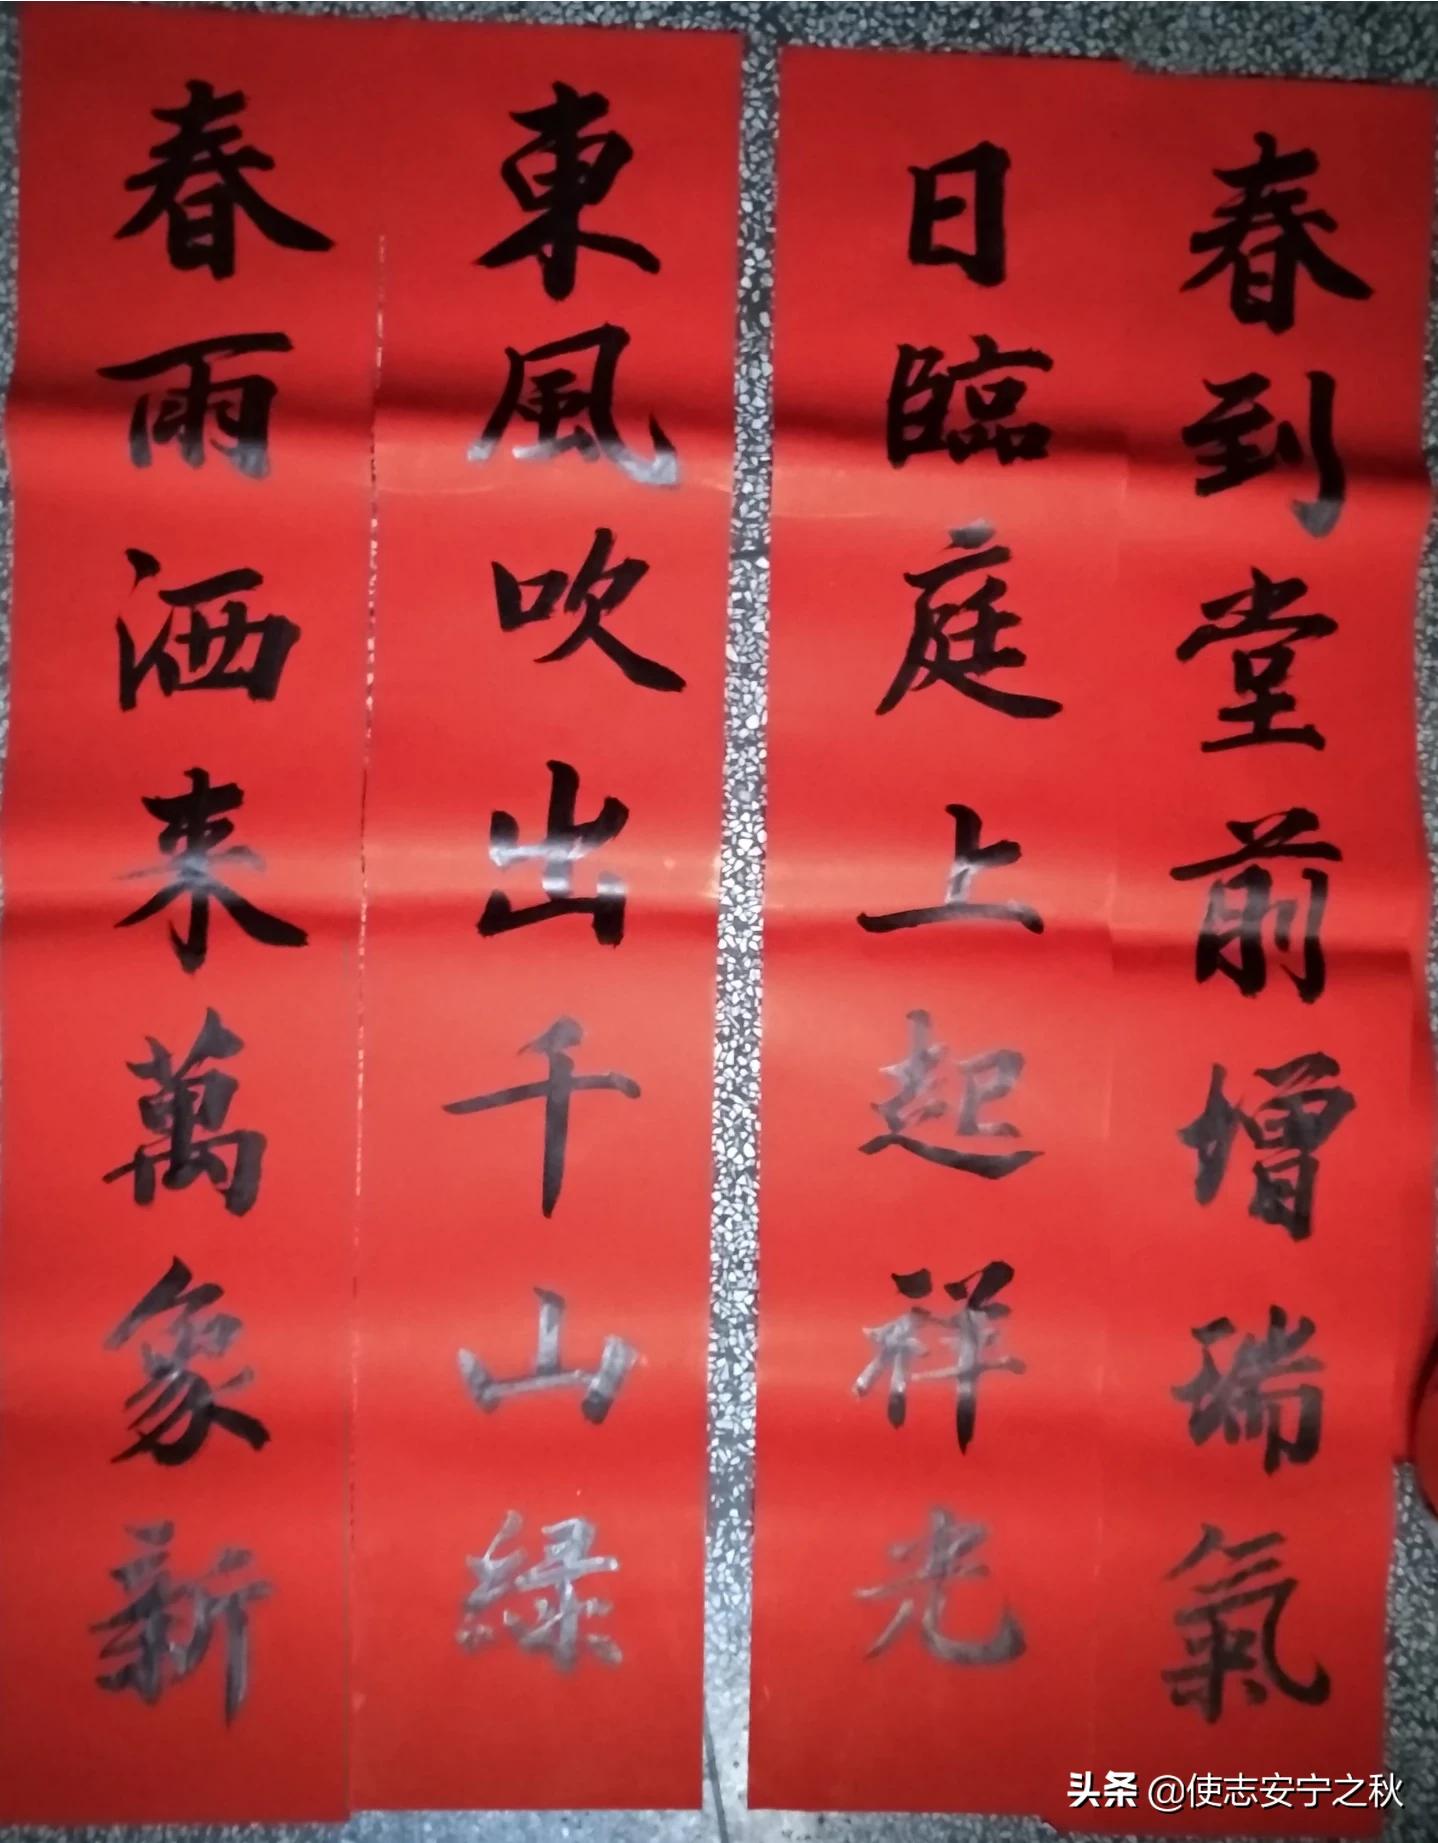 春到堂前增瑞氣
日臨庭上起祥光
東風吹出千山綠
春雨洒来萬象新
头条 @使志安宁之秋